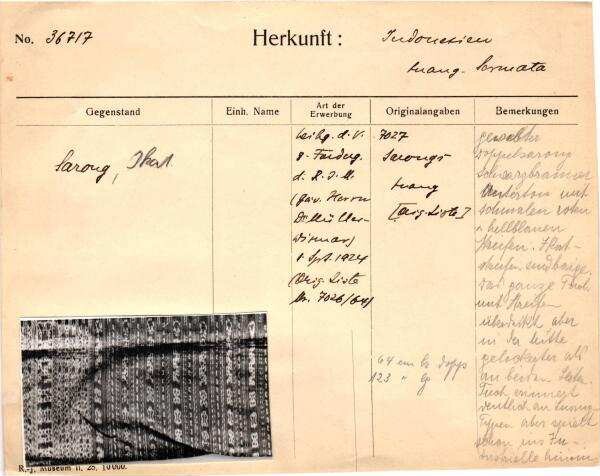 No. 36717
Herkunft:
Indonesien
Luang-Sermata
Gegenstand
Einh. Name
Art der Erwerbung
Originalangaben
Bemerkungen
Sarong, Ikat
Leihg. d. V.
z. Förderg.
d. R. J. M.
(von Herrn
Dr Müller-
Wismar)
Sept. 1924
(Orig. Liste
Nr. 7026/64)
7027
Sarongs
Luang
[Orig. Liste]
64 cm br dopp
123 " lg
gewebter
Doppelsarong
schwarzbrauner
Unterton mit
schmalen roten
+ hellblauen
Streifen. Ikat-
streifen sind beige,
das ganze Tuch
mit Streifen
überdeckt aber
in der Mitte
gelockerter als
an beiden
Tuch erinnert
deutlich an Luang
Typen aber spielt
schon ins
hinein
R.-J. Museum II. 26. 10000.